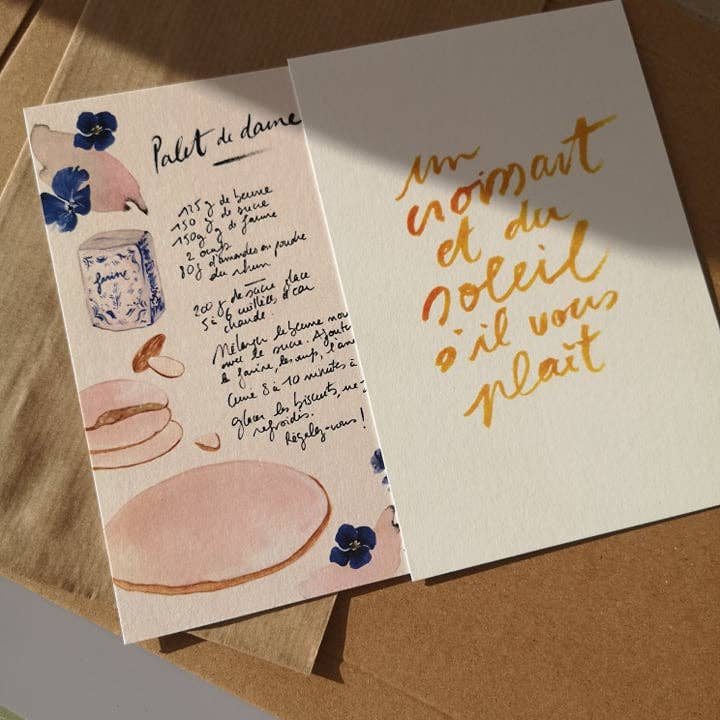 Palet de dame
125 g de beurre
150 g de sucre
150 g de farine
2 œufs
80g d'amandes en poudre
du rhum
200 g de sucre glace
5 à 6 cuillères d'eau
chaude.
Mélanger le beurre mou
avec le sucre. Ajoute
la farine, les œufs, l'am
Cuire 8 à 10 minutes à
glacer les biscuits, une
refroidis.
Régalez-vous !
farine
un
croissant
et du
soleil
s'il vous
plaît